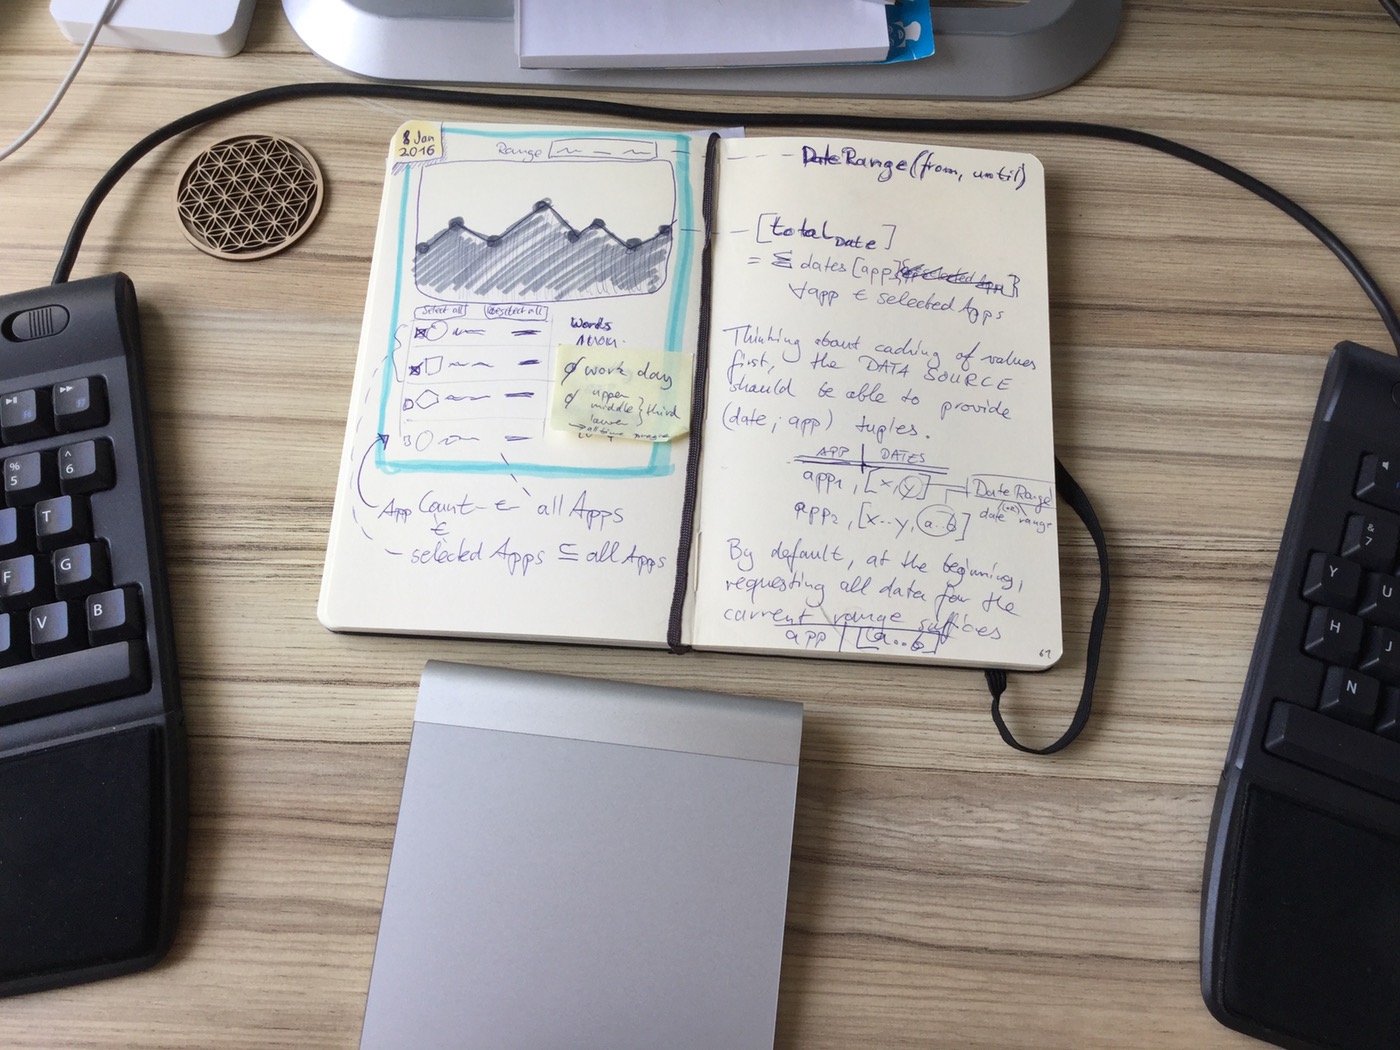 8 Jan
2016
Range
Select all
Deselect all
Words
work day
upper
middle } third
lower
App Count ∈ all Apps
∈
selected Apps ⊆ all Apps
DateRange(from, until)
[total Date]
= Σ dates [app]
∀app ∈ selected Apps
Thinking about caching of values
first, the DATA SOURCE
should be able to provide
(date, app) tuples.
APP | DATES
app1, [x, y]
DateRange
date range
app2, [x..y, a..b]
By default, at the beginning,
requesting all data for the
current range suffices
app | [a..b]
61
%
5
^
6
T
F
G
V
B
&
7
Y
U
H
J
N